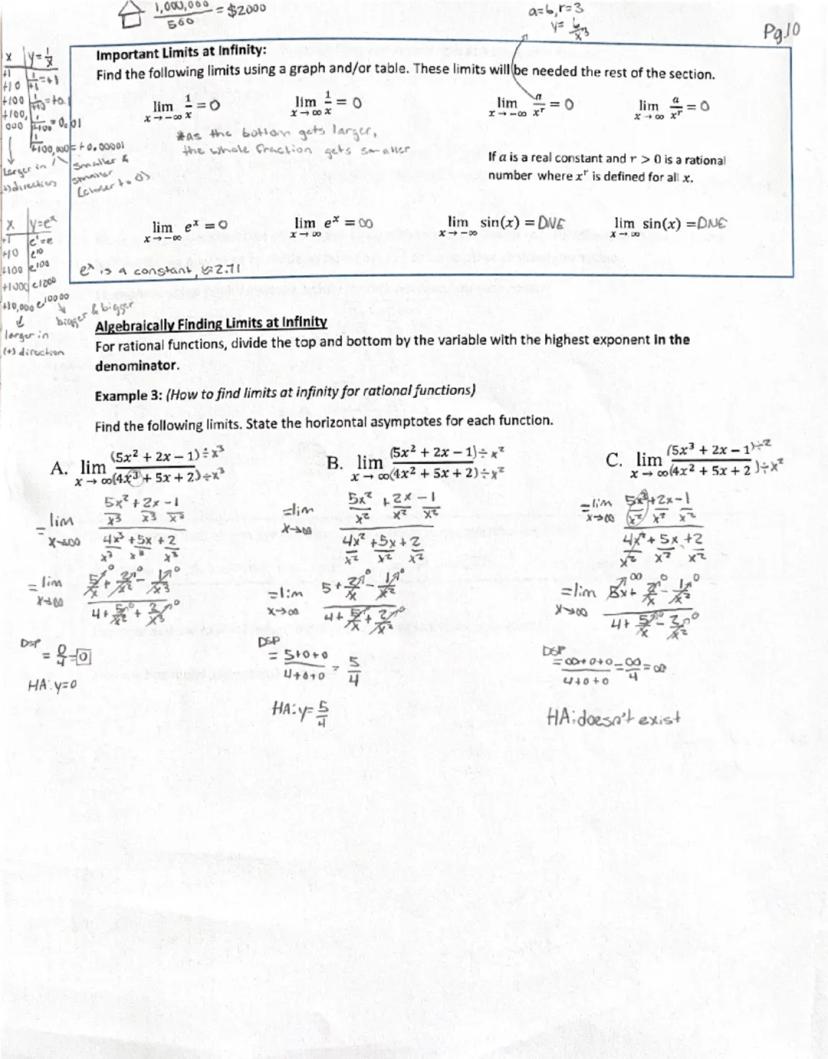 1,000,000 / 500 = $2000
a=6, r=3
y= 6/x³
Pg.10
Important Limits at Infinity:
Find the following limits using a graph and/or table. These limits will be needed the rest of the section.
lim x→-∞ 1/x = 0
lim x→∞ 1/x = 0
lim x→-∞ a/xʳ = 0
lim x→∞ a/xʳ = 0
*as the bottom gets larger,
the whole fraction gets smaller
If a is a real constant and r > 0 is a rational
number where xʳ is defined for all x.
x | y=1/x
+1 | 1/+1 = +1
+10
+100
+100,000
= 0.01
1/+100,000 = +0.00001
larger in (+) direction
smaller & smaller (closer to 0)
lim x→-∞ eˣ = 0
lim x→∞ eˣ = ∞
lim x→-∞ sin(x) = DNE
lim x→∞ sin(x) = DNE
eˣ is a constant ≈2.71
x | y=eˣ
+1 | e¹=e
+10 | e¹⁰
+100 | e¹⁰⁰
+1000 | e¹⁰⁰⁰
+10,000 | e¹⁰⁰⁰⁰
larger in (+) direction
bigger & bigger
Algebraically Finding Limits at Infinity
For rational functions, divide the top and bottom by the variable with the highest exponent in the
denominator.
Example 3: (How to find limits at infinity for rational functions)
Find the following limits. State the horizontal asymptotes for each function.
A. lim x→∞ (5x² + 2x − 1)÷x³ / (4x³ + 5x + 2)÷x³
= lim x→∞ (5x²/x³ + 2x/x³ - 1/x³) / (4x³/x³ + 5x/x³ + 2/x³)
= lim x→∞ (5/x + 2/x² - 1/x³) / (4 + 5/x² + 2/x³)
DSP
= 0/4 = 0
HA: y=0
B. lim x→∞ (5x² + 2x − 1)÷x² / (4x² + 5x + 2)÷x²
=lim x→∞ (5x²/x² + 2x/x² - 1/x²) / (4x²/x² + 5x/x² + 2/x²)
=lim x→∞ (5 + 2/x - 1/x²) / (4 + 5/x + 2/x²)
DSP
= (5+0+0) / (4+0+0) = 5/4
HA: y= 5/4
C. lim x→∞ (5x³ + 2x − 1)÷² / (4x² + 5x + 2)÷x²
=lim x→∞ (5x³/x² + 2x/x² - 1/x²) / (4x²/x² + 5x/x² + 2/x²)
=lim x→∞ (5x + 2/x - 1/x²) / (4 + 5/x - 2/x²)
DSP
= (∞+0+0) / (4+0+0) = ∞/4 = ∞
HA: doesn't exist